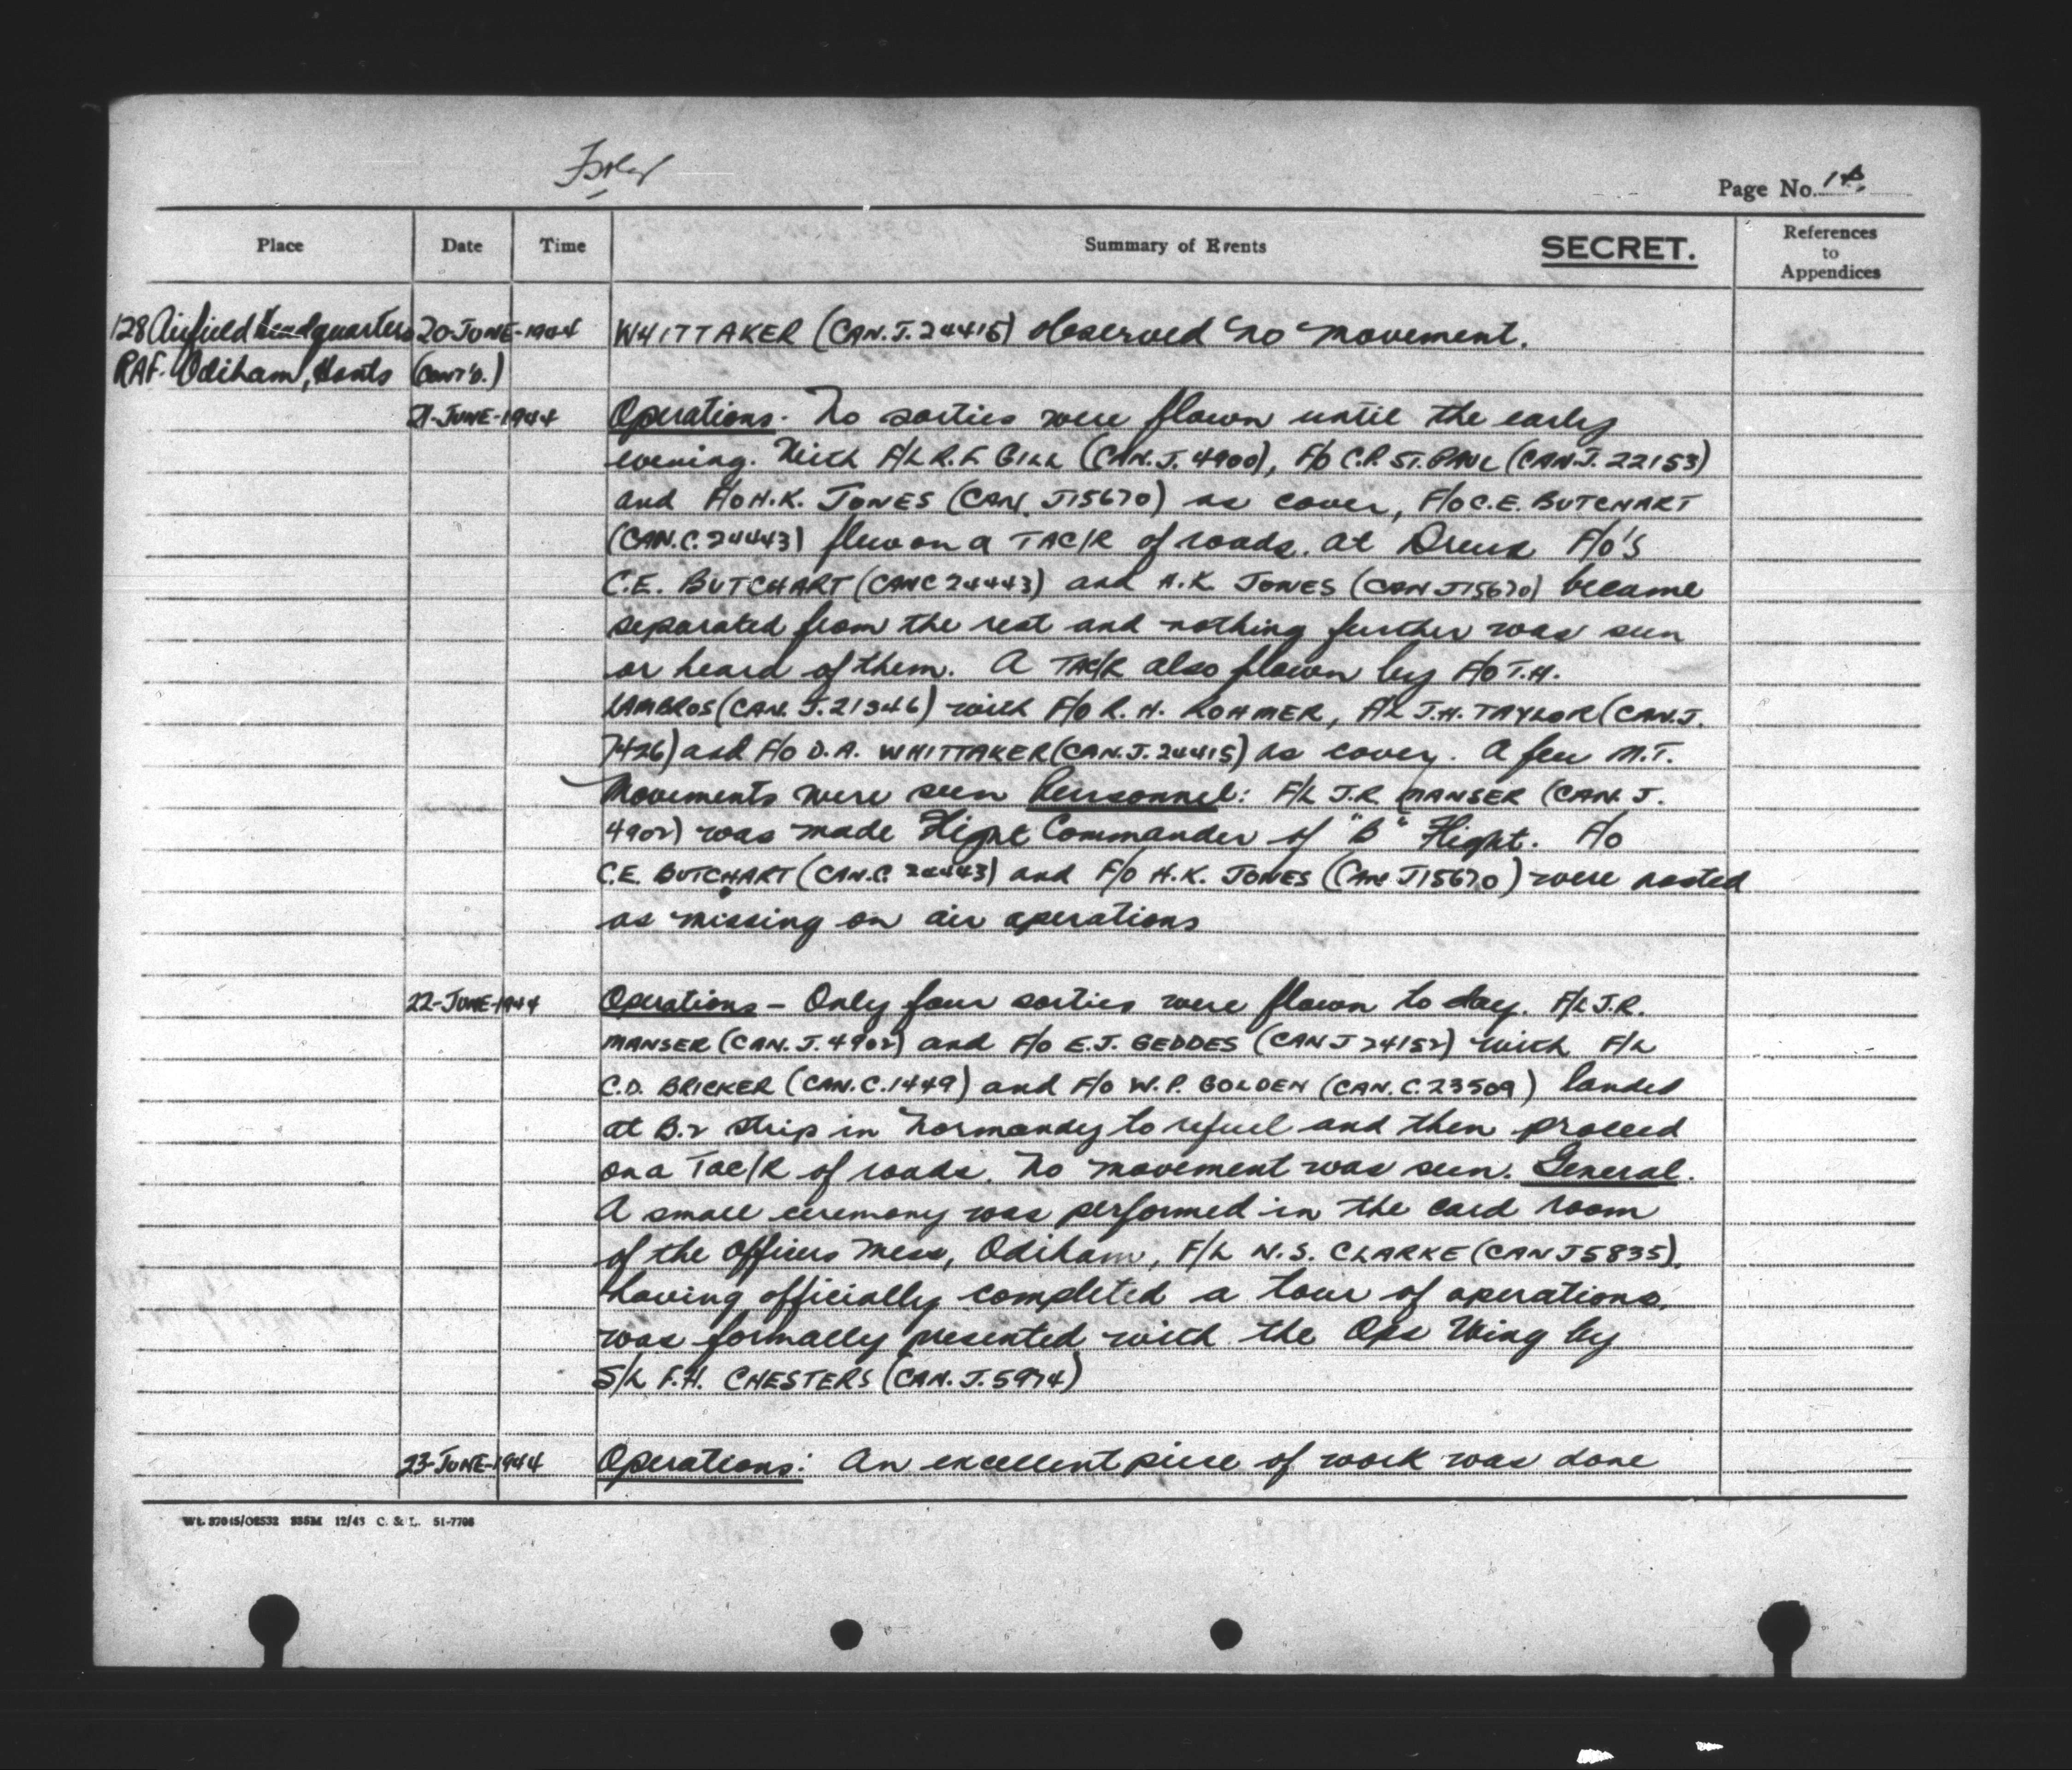 Page No.
Place Date Time Summary of Events SECRET. References to Appendices
128 Airfield Headquarters 20-JUNE-1944 WHITTAKER (CAN.J.24415) observed no movement.
RAF. Odiham, Hants (CONT'D.)
21-JUNE-1944 Operations. No sorties were flown until the early
evening. With F/L R.F. GILL (CAN.J.4900), F/O C.P. ST. PAUL (CAN.J.22153)
and F/O H.K. JONES (CAN. J15670) as cover, F/O C.E. BUTCHART
(CAN.C.24443) flew on a TAC/R of roads. At Dreux F/O'S
C.E. BUTCHART (CAN C 24443) and H.K. JONES (CAN J15670) became
separated from the rest and nothing further was seen
or heard of them. A TAC/R also flown by F/O T.H.
LAMBROS (CAN. J.21346) with F/O R.H. ROHMER, F/L J.H. TAYLOR (CAN.J.
7426) and F/O D.A. WHITTAKER (CAN.J.24415) as cover. A few M.T.
Movements were seen Personnel: F/L J.R. MANSER (CAN. J.
4902) was made Flight Commander of "B" Flight. F/O
C.E. BUTCHART (CAN.C. 24443) and F/O H.K. JONES (CAN J15670) were posted
as missing on air operations
22-JUNE-1944 Operations - Only four sorties were flown to day. F/L J.R.
MANSER (CAN. J. 4902) and F/O E.J. GEDDES (CAN J 24152) with F/L
C.D. BRICKER (CAN.C.1449) and F/O W.P. GOLDEN (CAN.C.23509) landed
at B.2 strip in Normandy to refuel and then proceed
on a Tac/R of roads. No movement was seen. General.
A small ceremony was performed in the card room
of the Officers Mess, Odiham, F/L N.S. CLARKE (CAN J5835),
having officially completed a tour of operations,
was formally presented with the Ops Wing by
S/L F.H. CHESTERS (CAN. J.5974)
23-JUNE-1944 Operations: An excellent piece of work was done
Wt. 37045/O8532 835M 12/43 C. & L. 51-7706